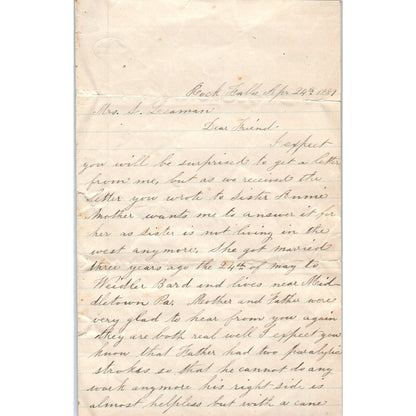 Rock Falls Apr 24th 1889
Mrs. S. Leaman
Dear Friend
I expect
you will be surprised to get a letter
from me, but as we received the
letter you wrote to Sister Annie
Mother wants me to answer it for
her as sister is not living in the
west anymore. She got married
three years ago the 24th of may to
Weidler Bard and lives near Mid-
dletown Pa. Mother and Father were
very glad to hear from you again
they are both real well I expect you
know that Father had two paralytic
strokes so that he cannot do any
work anymore his right side is
almost helpless but with a cane